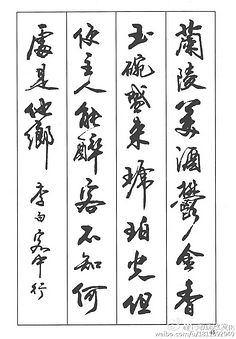 蘭陵美酒鬱金香
玉碗盛来琥珀光但
使主人能醉客不知何
處是他鄉 李白客中行